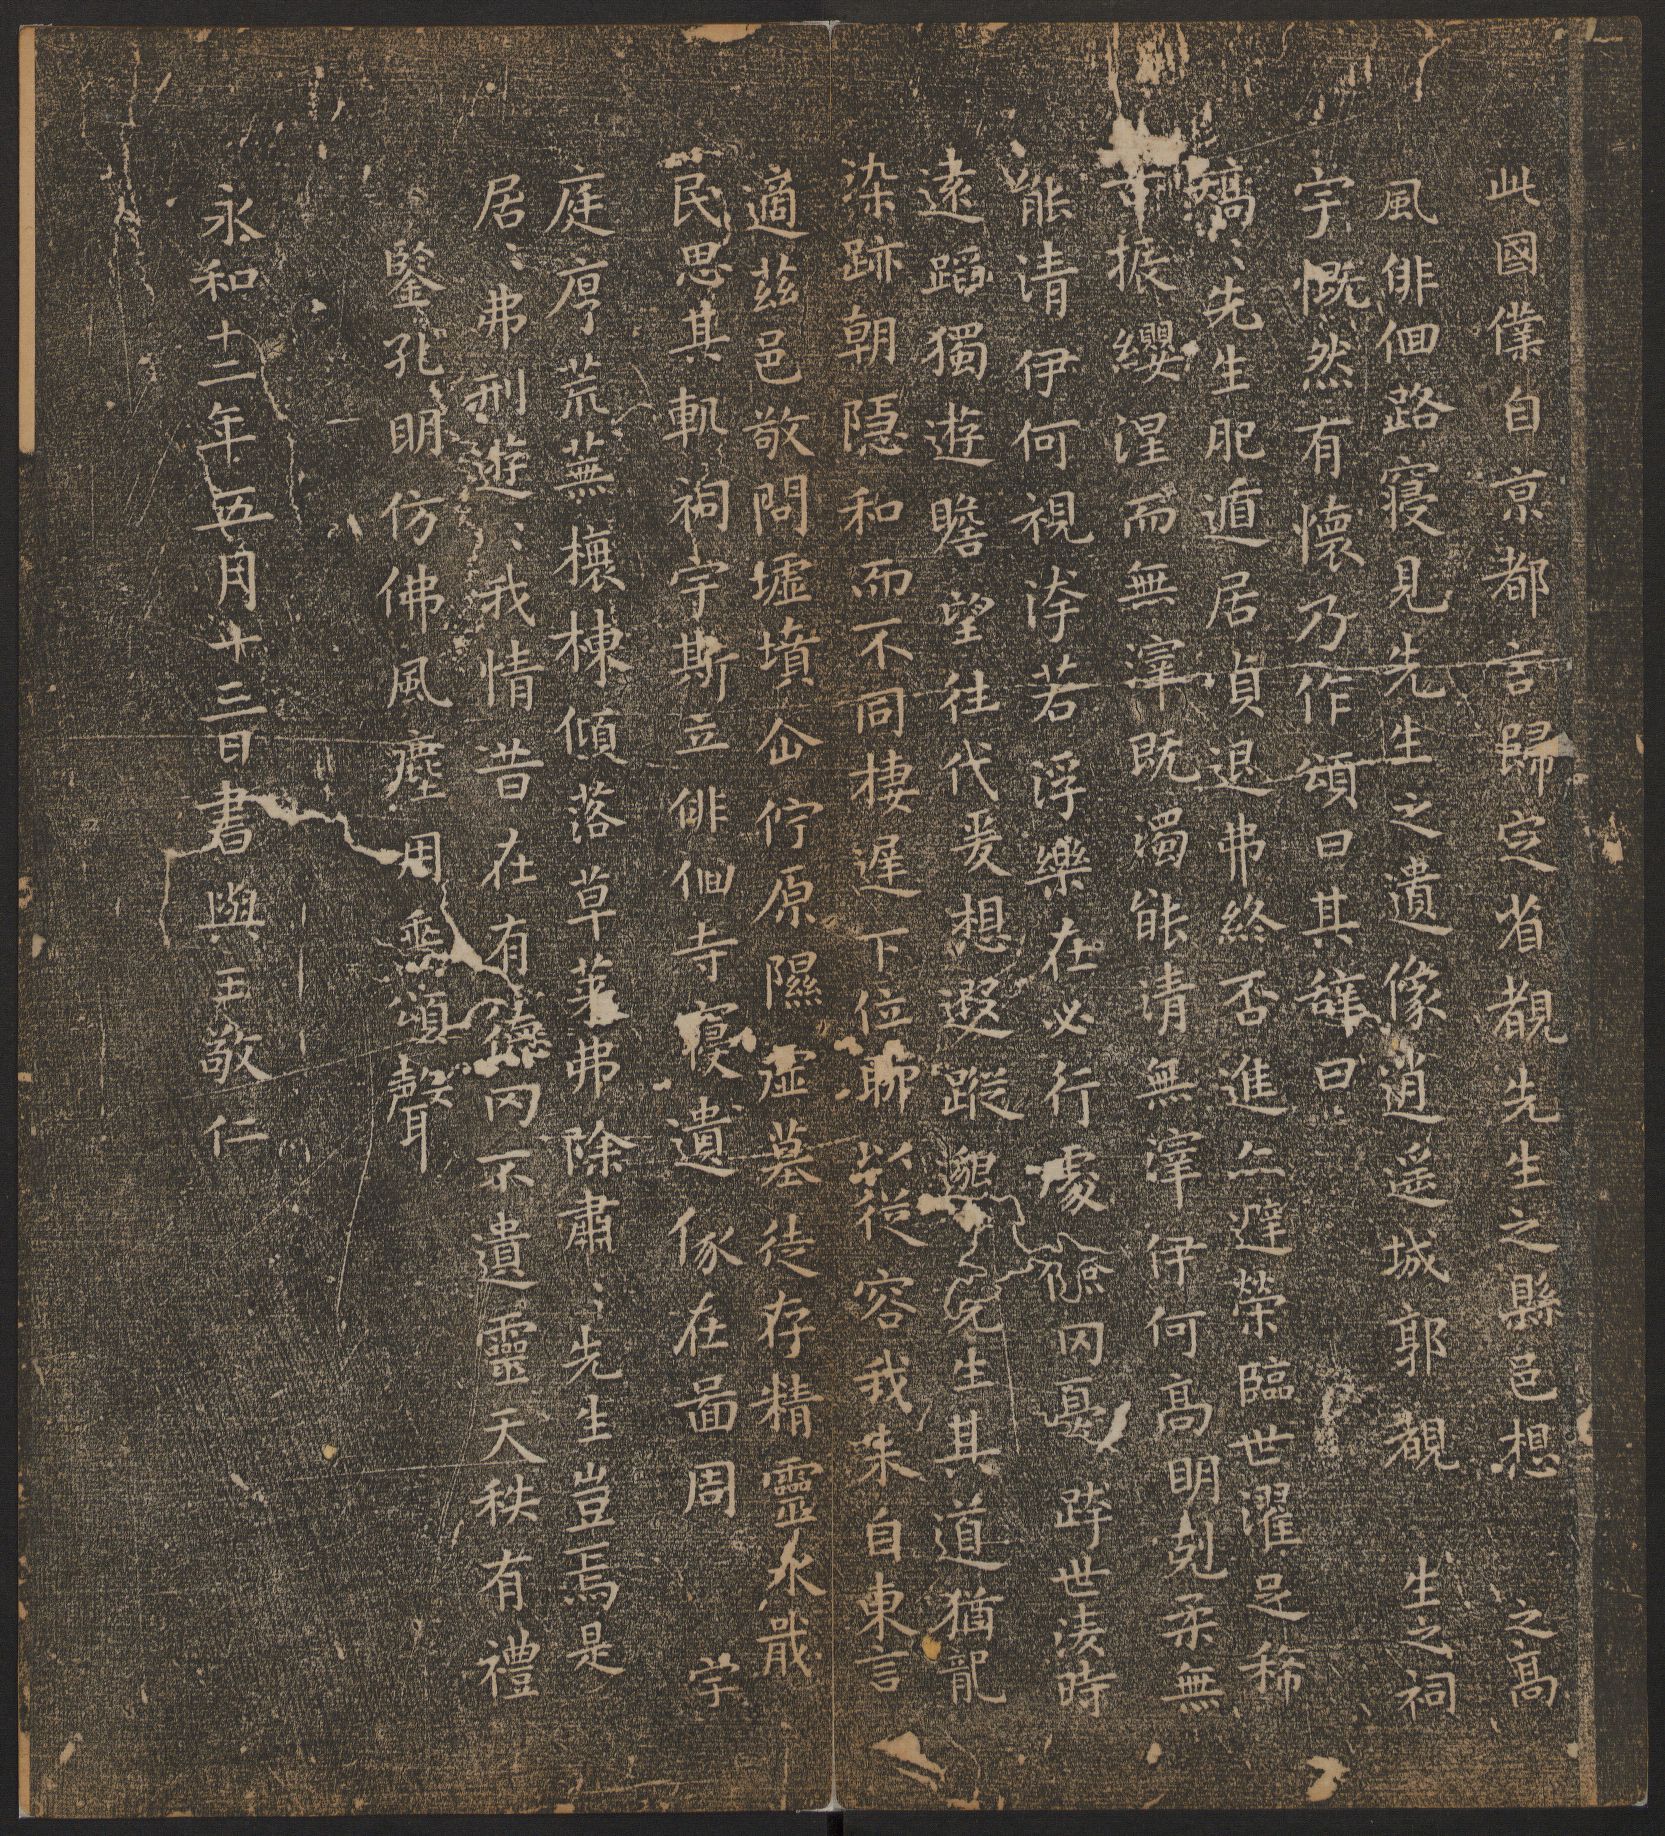 此國僕自京都言歸定省覩先生之縣邑想之高
風俳佪路寢見先生之遺像逍遥城郭覩生之祠
宇慨然有懷乃作頌曰其辭曰
矯〻先生肥遁居貞退弗終否進亦避榮臨世濯足稀
古振纓涅而無滓既濁能清無滓伊何高明剋柔無
能清伊何視汙若浮樂在必行處儉罔憂跨世淩時
遠蹈獨遊瞻望往代爰想遐蹤邈〻先生其道猶龍
染跡朝隱和而不同棲遲下位聊以從容我来自東言
適茲邑敬問墟墳企佇原隰虛墓徒存精靈永戢
民思其軌祠宇斯立俳佪寺寢遺像在啚周宇
庭序荒蕪榱棟傾落草萊弗除肅〻先生豈焉是
居〻弗刑遊〻我情昔在有德罔不遺靈天秩有禮
鑒孔明仿佛風塵用垂頌聲
永和十二年五月十三日書與王敬仁